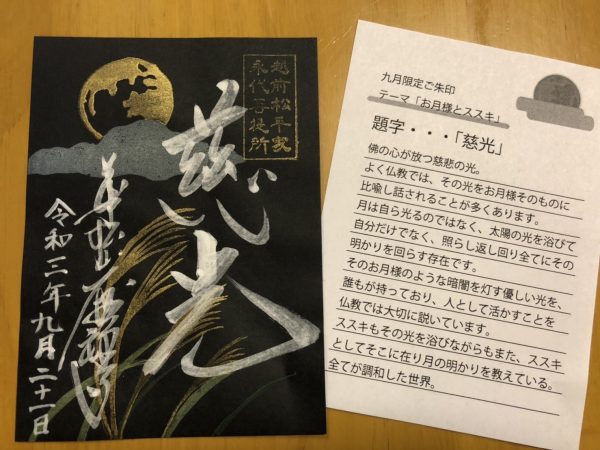 越前松平家
永代菩提所
慈光
令和三年九月二十一日
九月限定ご朱印
テーマ「お月様とススキ」
題字・・・「慈光」
佛の心が放つ慈悲の光。
よく仏教では、その光をお月様そのものに
比喩し話されることが多くあります。
月は自ら光るのではなく、太陽の光を浴びて
自分だけでなく、照らし返し回り全てにその
明かりを回らす存在です。
そのお月様のような暗闇を灯す優しい光を、
誰もが持っており、人として活かすことを
仏教では大切に説いています。
ススキもその光を浴びながらもまた、ススキ
としてそこに在り月の明かりを教えている。
全てが調和した世界。